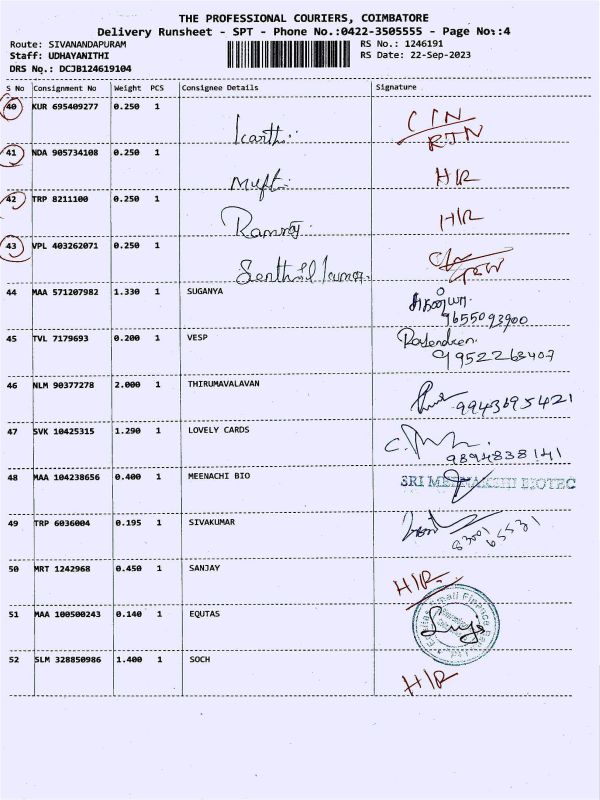 THE PROFESSIONAL COURIERS, COIMBATORE
Delivery Runsheet - SPT - Phone No.:0422-3505555 - Page No.:4
Route: SIVANANDAPURAM RS No.: 1246191
Staff: UDHAYANITHI RS Date: 22-Sep-2023
DRS No.: DCJB124619104
S No Consignment No Weight PCS Consignee Details Signature
40 KUR 695409277 0.250 1
Karthi
41 NDA 905734108 0.250 1
H/R
42 TRP 8211100 0.250 1
H/R
43 VPL 403262071 0.250 1
Senthil kumar
44 MAA 571207982 1.330 1 SUGANYA
9655093900
45 TVL 7179693 0.200 1 VESP
9952263407
46 NLM 90377278 2.000 1 THIRUMAVALAVAN
9943695421
47 SVK 10425315 1.290 1 LOVELY CARDS
9894838141
48 MAA 104238656 0.400 1 MEENACHI BIO SRI MEENAKSHI BIOTEC
49 TRP 6036004 0.195 1 SIVAKUMAR
50 MRT 1242968 0.450 1 SANJAY
H/R
51 MAA 100500243 0.140 1 EQUTAS
52 SLM 328850986 1.400 1 SOCH
H/R